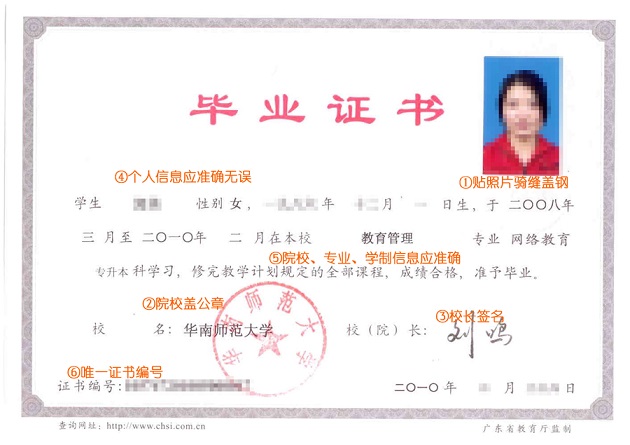 毕业证书
④个人信息应准确无误
①贴照片骑缝盖钢
学生 性别 女， 年 月 日生，于 二〇〇八年
三 月至 二〇一〇年 二 月在本校 教育管理 专业 网络教育
⑤院校、专业、学制信息应准确
专升本 科学习，修完教学计划规定的全部课程，成绩合格，准予毕业。
②院校盖公章
③校长签名
校 名：华南师范大学 校（院）长：刘鸣
华南师范大学
⑥唯一证书编号
证书编号： 二〇一〇年 月 日
查询网址：http://www.chsi.com.cn 广东省教育厅监制